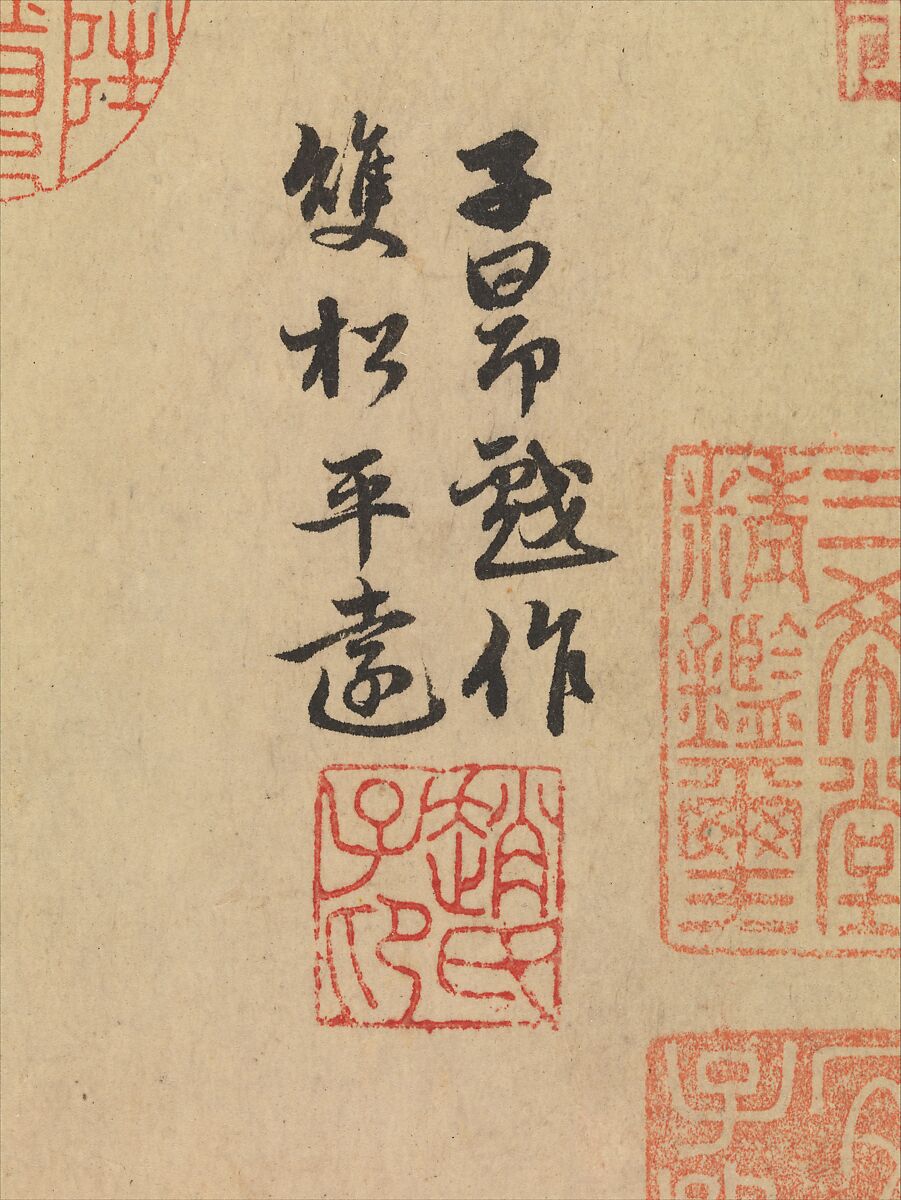 子昂戲作
雙松平遠
趙氏
子卬
三希堂
精鑑璽
子